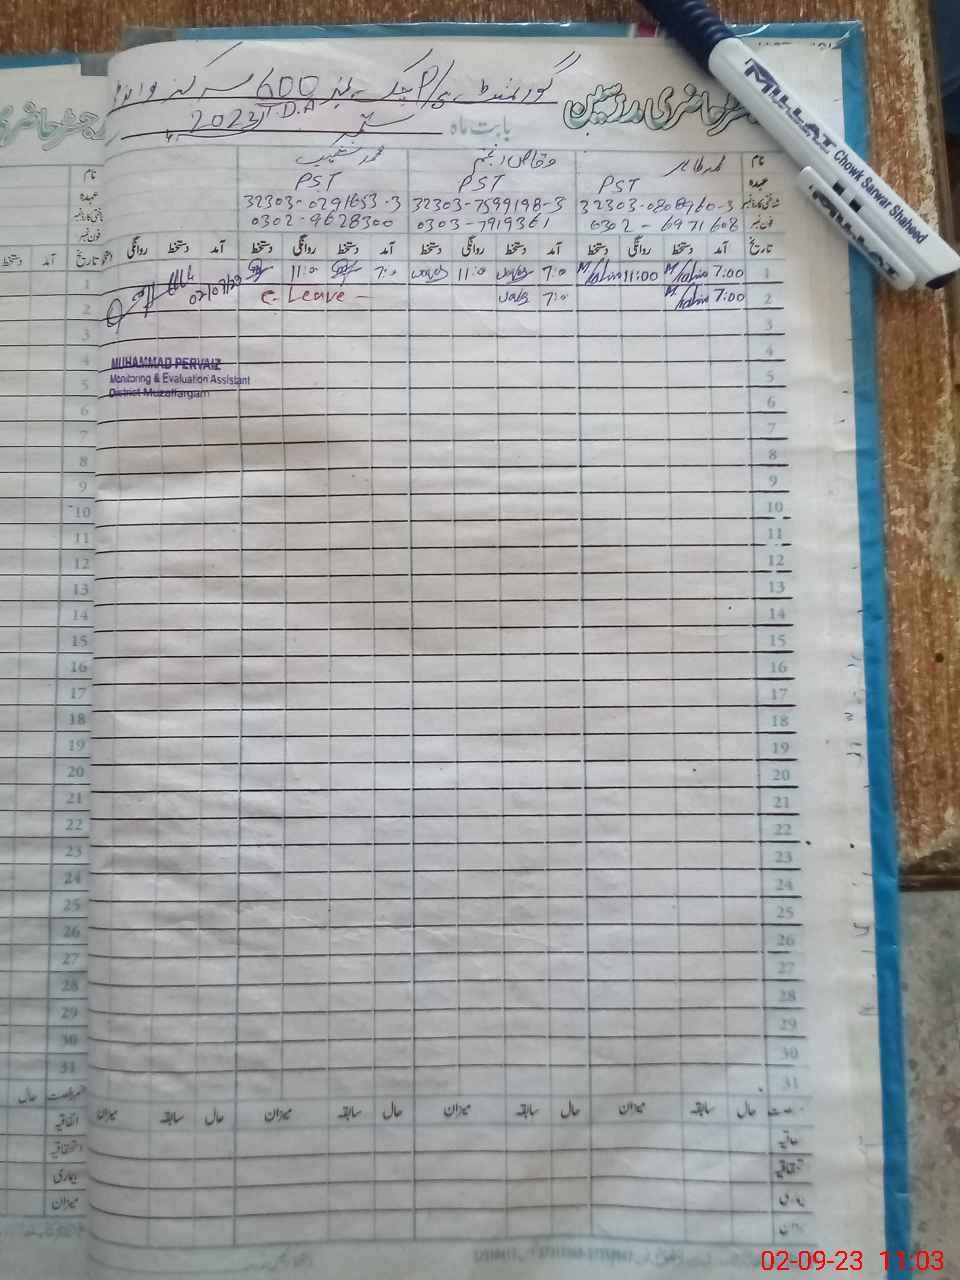 رجسٹر حاضری مدرسین
گورنمنٹ P/S چک نمبر 600 T.D.A
بابت ماہ ستمبر 2023ء
نام محمد طاہر وقاص انجم محمد شکیب
عہدہ PST PST PST
32303-0808960-3 32303-7599198-3 32303-0291653-3
فون نمبر 0302-6971608 0303-7919361 0302-9628300
تاریخ آمد دستخط روانگی دستخط آمد دستخط روانگی دستخط آمد دستخط روانگی دستخط آمد دستخط روانگی
1 7:00 11:00 7:0 11:0 7:0 11:0
2 7:00 7:0 C. Leave
02/09/23
MUHAMMAD PERVAIZ
Monitoring & Evaluation Assistant
District Muzaffargarh
3
4
5
6
7
8
9
10
11
12
13
14
15
16
17
18
19
20
21
22
23
24
25
26
27
28
29
30
31
حال سابقہ میزان حال سابقہ میزان حال سابقہ میزان حال سابقہ میزان
اتفاقیہ
بیماری
میزان
MILLAT Chowk Sarwar Shaheed
MILLAT
02-09-23 11:03